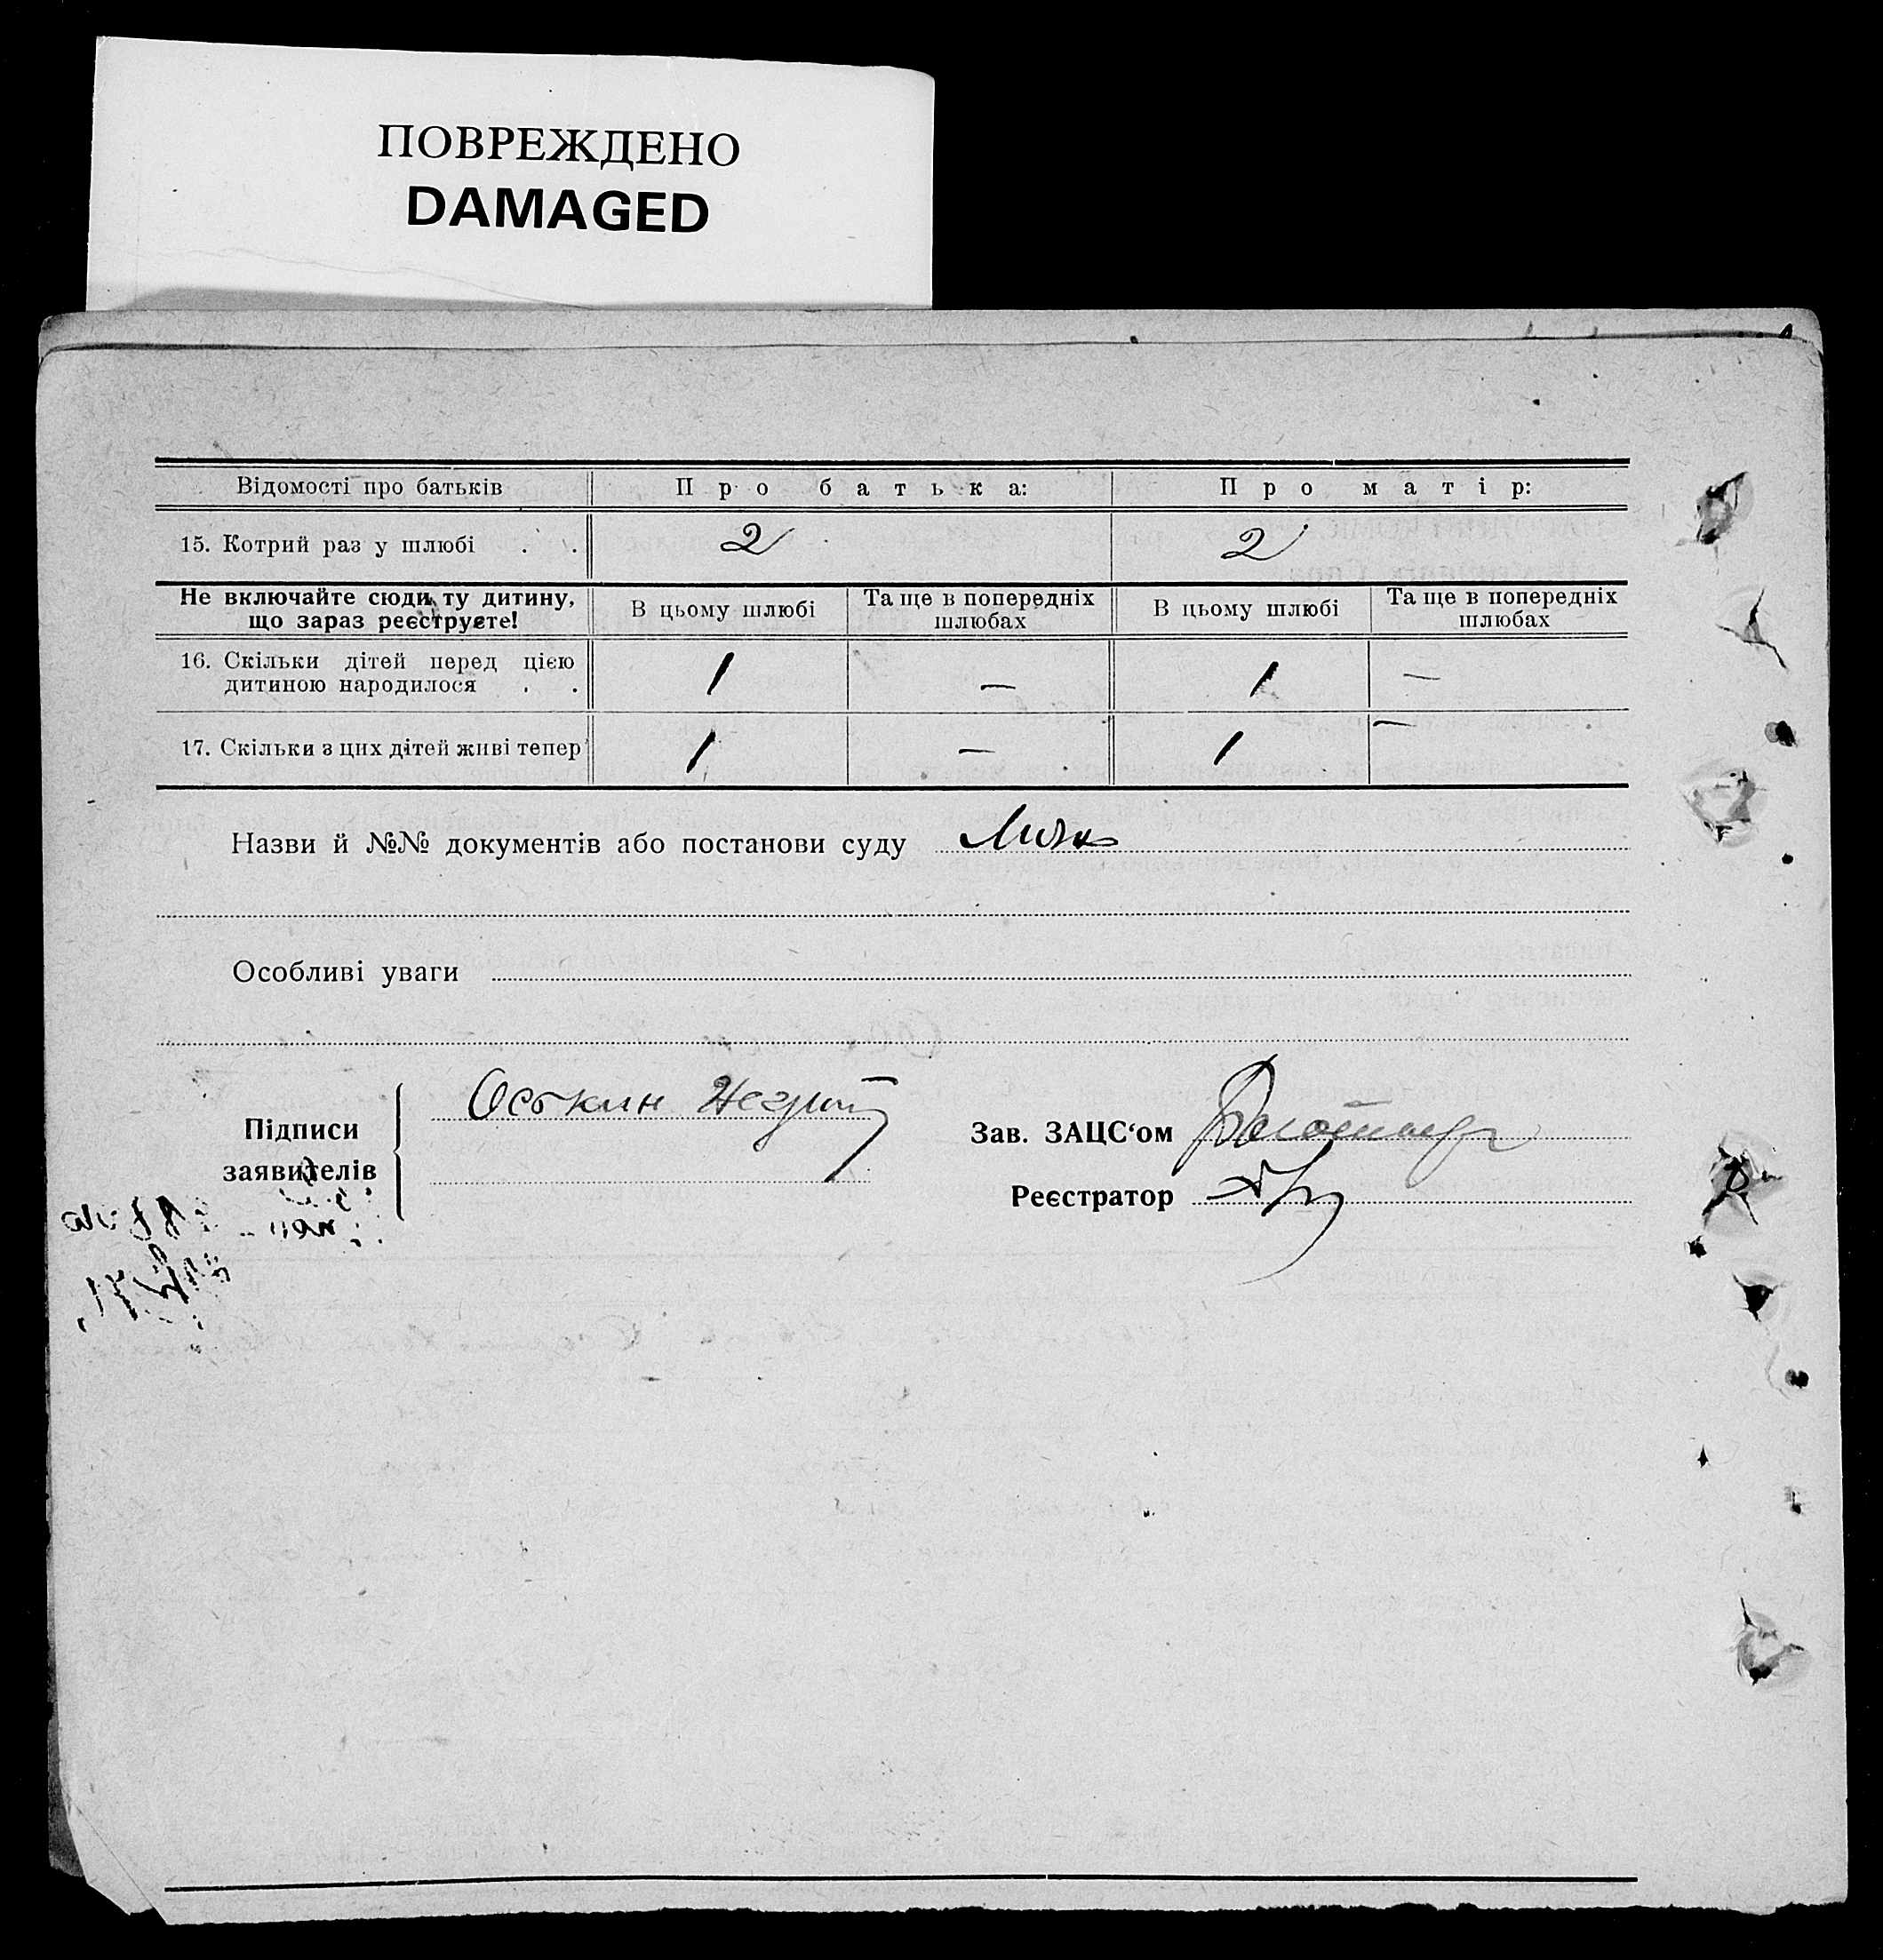 ПОВРЕЖДЕНО
DAMAGED
Відомості про батьків Про батька: Про матір:
15. Котрий раз у шлюбі . . 2 2
Не включайте сюди ту дитину, що зараз реєструєте! В цьому шлюбі Та ще в попередніх шлюбах В цьому шлюбі Та ще в попередніх шлюбах
16. Скільки дітей перед цією
дитиною народилося . . 1 — 1 —
17. Скільки з цих дітей живі тепер 1 — 1 —
Назви й №№ документів або постанови суду
Особливі уваги
Підписи
заявителів
Оськин
Зав. ЗАЦС‘ом
Реєстратор